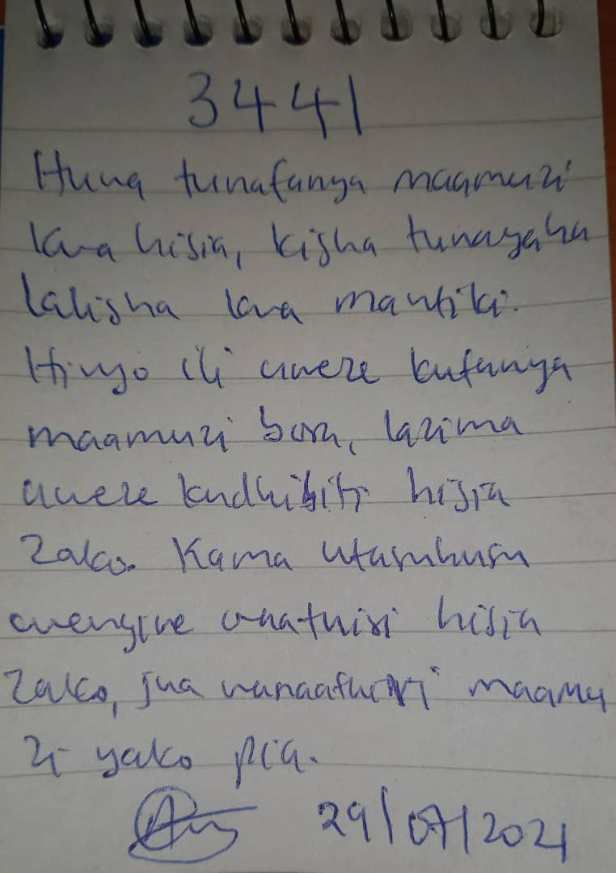 3441
Huwa tunafanya maamuzi
kwa hisia, kisha tunayaha
lalisha kwa mantiki.
Hivyo ili uweze kufanya
maamuzi bora, lazima
uweze kudhibiti hisia
zako. Kama utaruhusu
wengine waathiri hisia
zako, jua wanaathiri maamu
zi yako pia.
29/07/2021